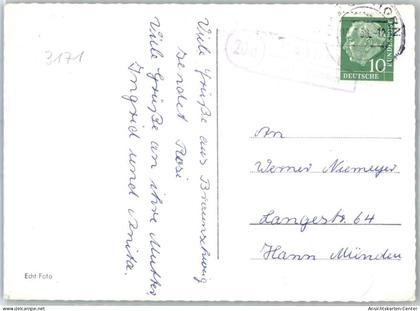 3171
Viele Grüße aus Braunschweig
sendet Rosi
Viele Grüße an ihre Mutter
Ingrid und Anita.
Echt Foto
20a
10
DEUTSCHE
BUNDESPOST
An
Werner Niemeyer
Langestr. 64
Hann Münden